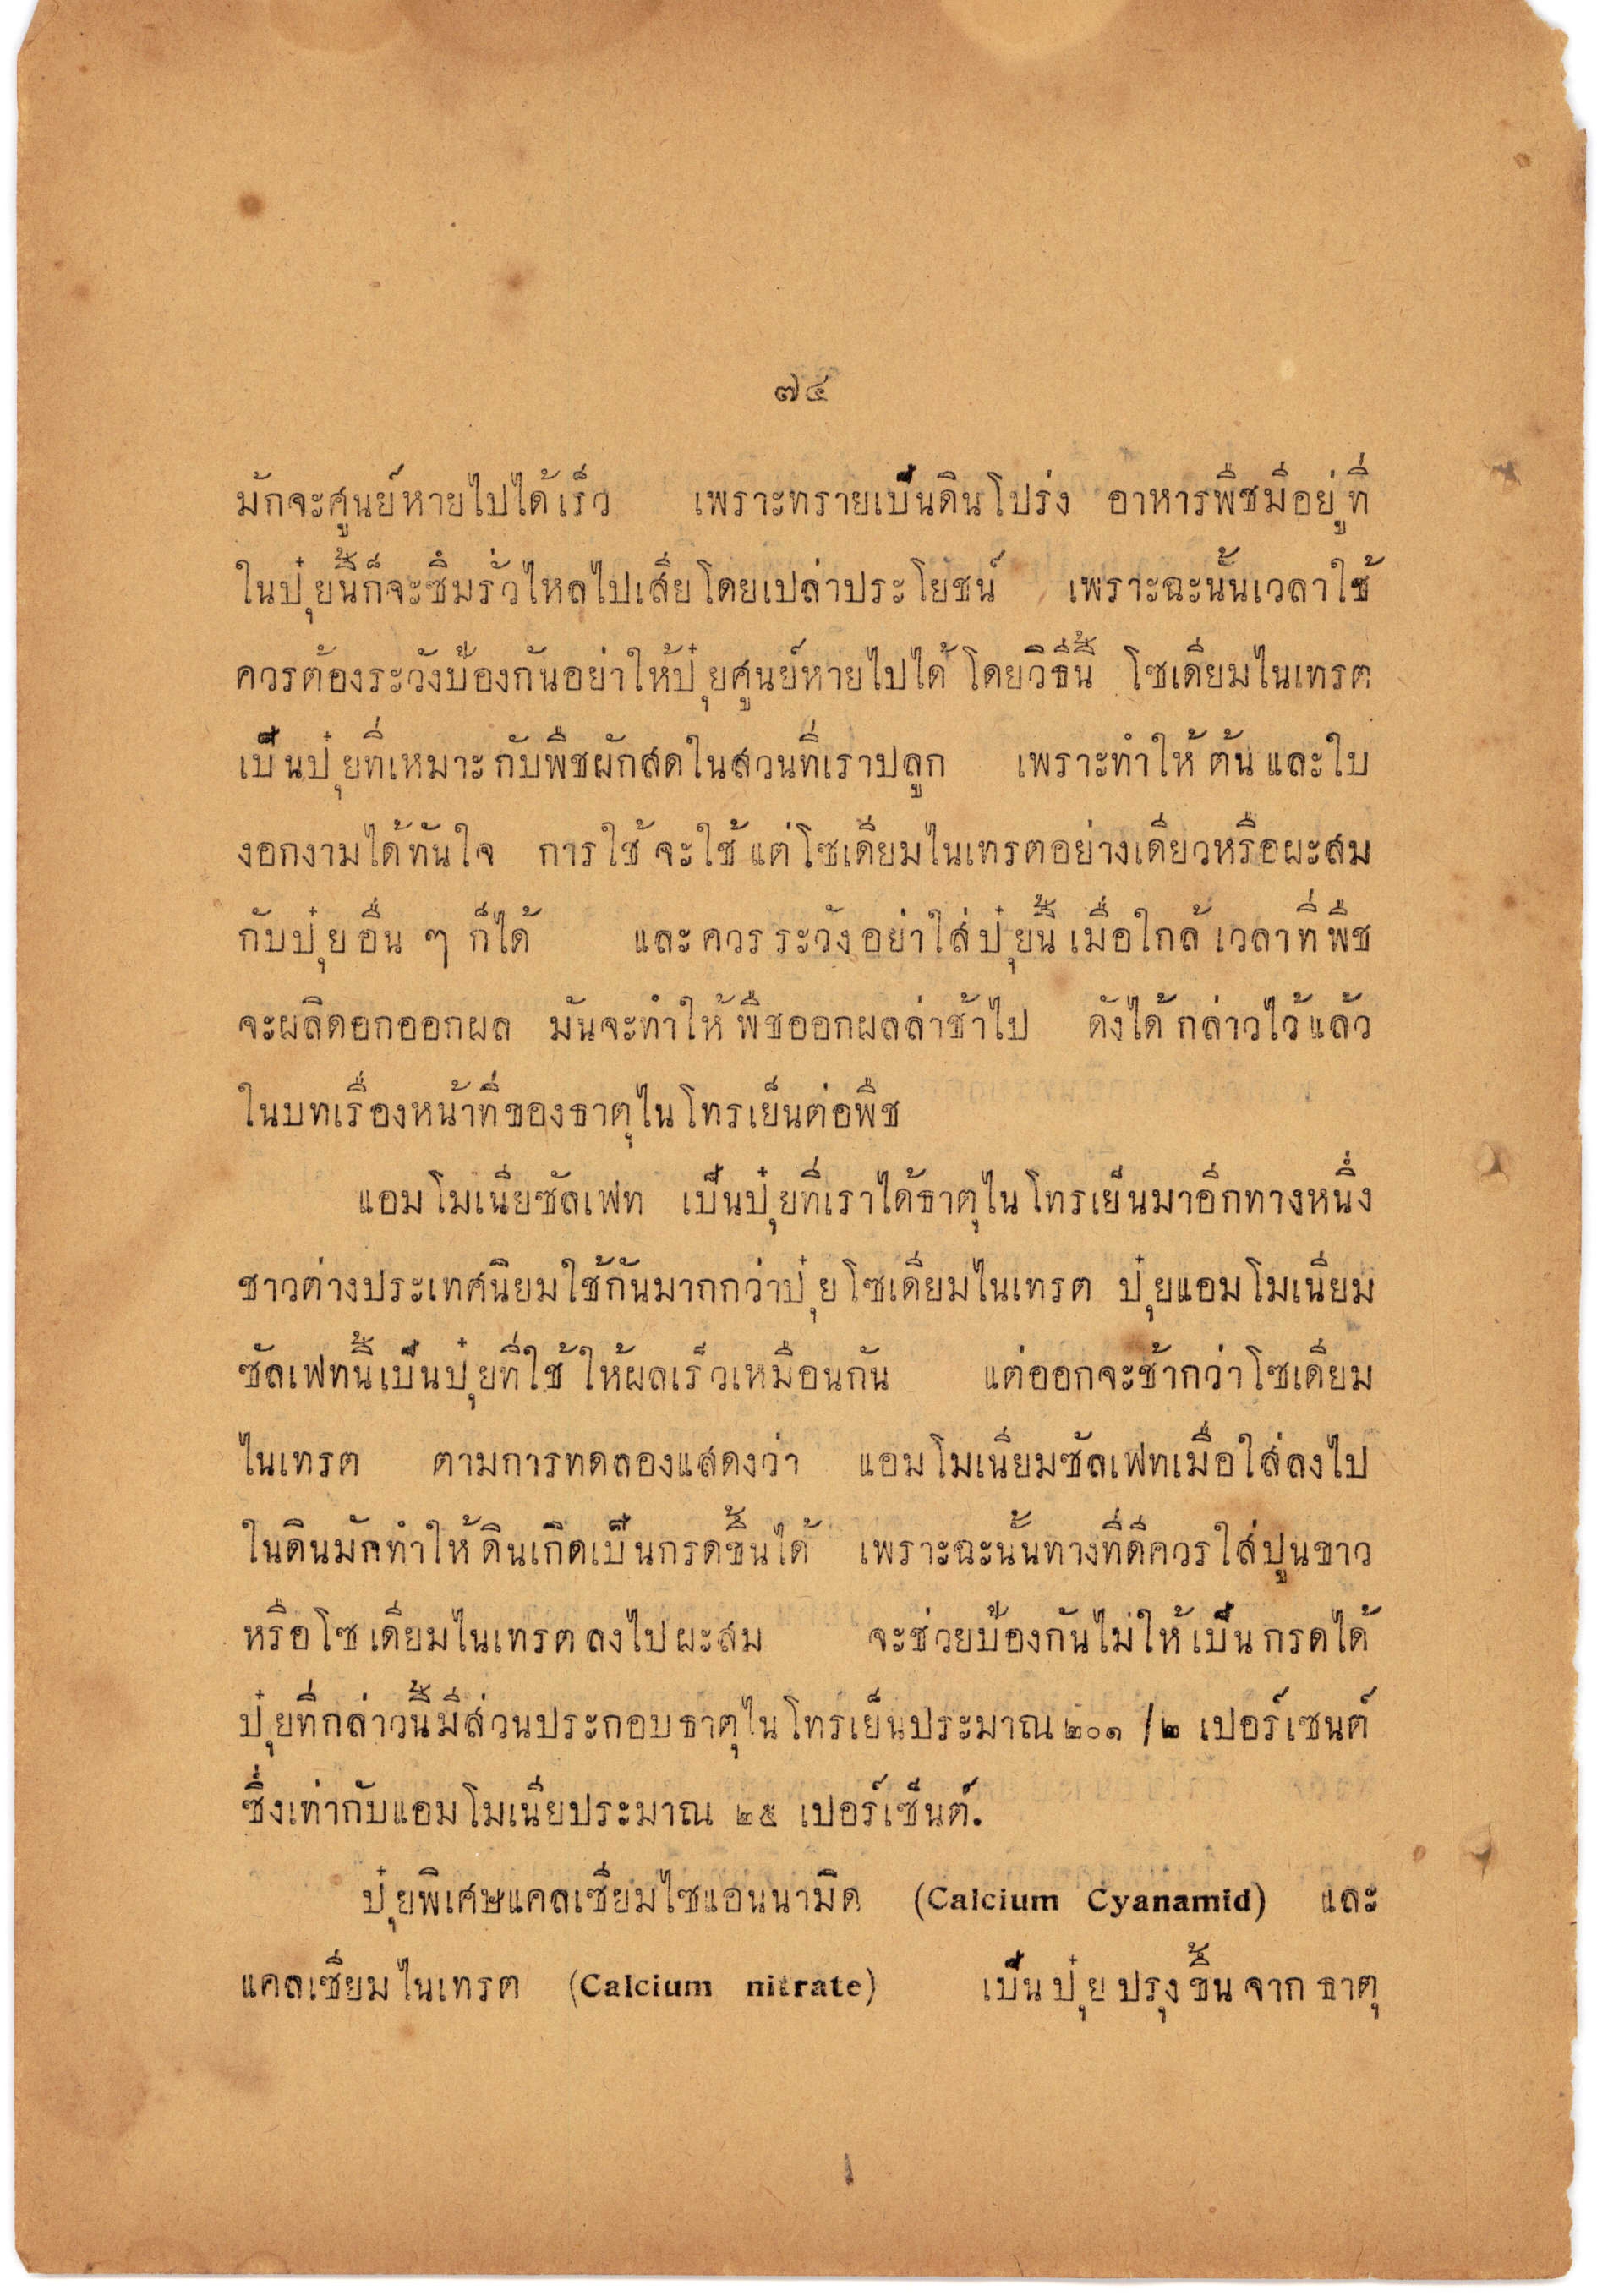 ๗๔
มักจะศูนย์หายไปได้เร็ว เพราะทรายเป็นดินโปร่ง อาหารพืชมีอยู่ที่
ในปุ๋ยนี้ก็จะซึมรั่วไหลไปเสียโดยเปล่าประโยชน์ เพราะฉะนั้นเวลาใช้
ควรต้องระวังป้องกันอย่าให้ปุ๋ยศูนย์หายไปได้ โดยวิธีนี้ โซเดียมไนเทรต
เป็นปุ๋ยที่เหมาะกับพืชผักสดในสวนที่เราปลูก เพราะทำให้ต้นและใบ
งอกงามได้ทันใจ การใช้จะใช้แต่โซเดียมไนเทรตอย่างเดียวหรือผะสม
กับปุ๋ยอื่น ๆ ก็ได้ และควรระวังอย่าใส่ปุ๋ยนี้เมื่อใกล้เวลาที่พืช
จะผลิดอกออกผล มันจะทำให้พืชออกผลล่าช้าไป ดังได้กล่าวไว้แล้ว
ในบทเรื่องหน้าที่ของธาตุไนโทรเย็นต่อพืช
แอมโมเนียซัลเฟท เป็นปุ๋ยที่เราได้ธาตุไนโทรเย็นมาอีกทางหนึ่ง
ชาวต่างประเทศนิยมใช้กันมากกว่าปุ๋ยโซเดียมไนเทรต ปุ๋ยแอมโมเนียม
ซัลเฟทนี้เป็นปุ๋ยที่ใช้ให้ผลเร็วเหมือนกัน แต่ออกจะช้ากว่าโซเดียม
ไนเทรต ตามการทดลองแสดงว่า แอมโมเนียมซัลเฟทเมื่อใส่ลงไป
ในดินมักทำให้ดินเกิดเป็นกรดขึ้นได้ เพราะฉะนั้นทางที่ดีควรใส่ปูนขาว
หรือโซเดียมไนเทรตลงไปผะสม จะช่วยป้องกันไม่ให้เป็นกรดได้
ปุ๋ยที่กล่าวนี้มีส่วนประกอบธาตุไนโทรเย็นประมาณ ๒๐๑ /๒ เปอร์เซนต์
ซึ่งเท่ากับแอมโมเนียประมาณ ๒๕ เปอร์เซ็นต์.
ปุ๋ยพิเศษแคลเซียมไซแอนนามิด (Calcium Cyanamid) และ
แคลเซียมไนเทรต (Calcium nitrate) เป็นปุ๋ยปรุงขึ้นจากธาตุ